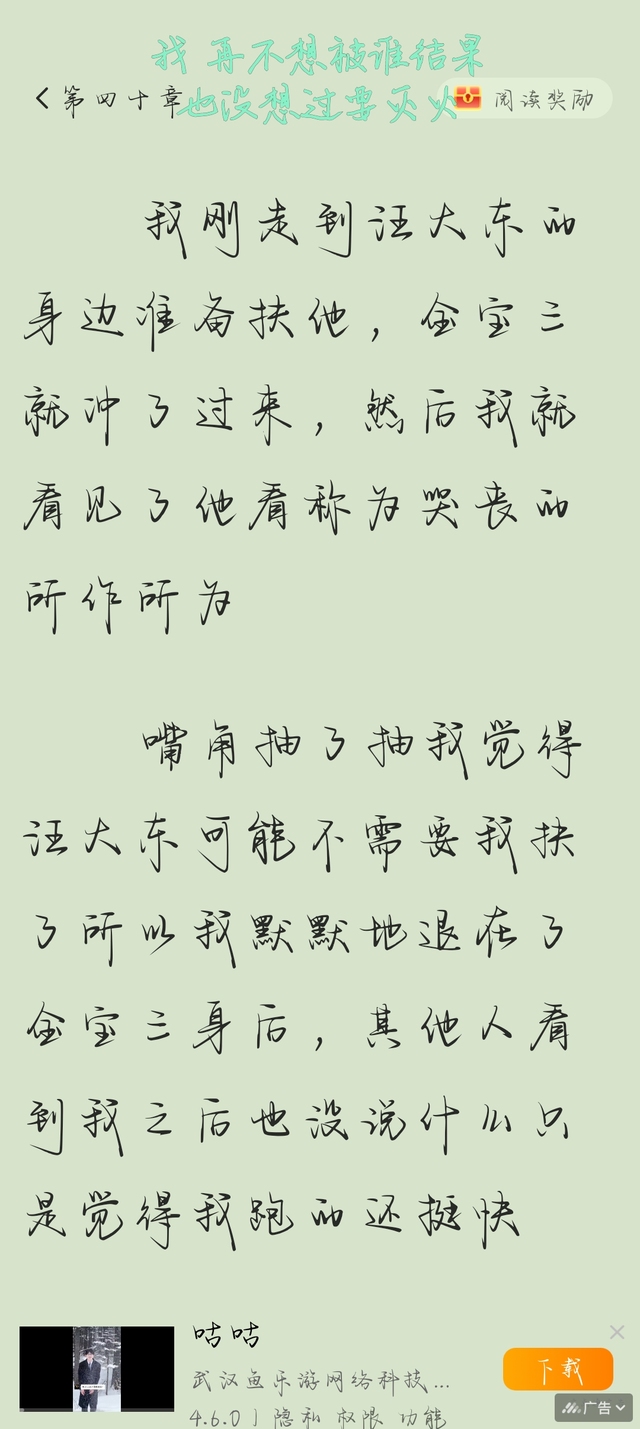 我 再不想被谁结果
第四十章
也没想过要灭火
阅读奖励
我刚走到汪大东的
身边准备扶他，金宝三
就冲了过来，然后我就
看见了他看称为哭丧的
所作所为
嘴角抽了抽我觉得
汪大东可能不需要我扶
了所以我默默地退在了
金宝三身后，其他人看
到我之后也没说什么只
是觉得我跑的还挺快
咕咕
武汉鱼乐游网络科技...
4.6.0 | 隐私 权限 功能
下载
广告